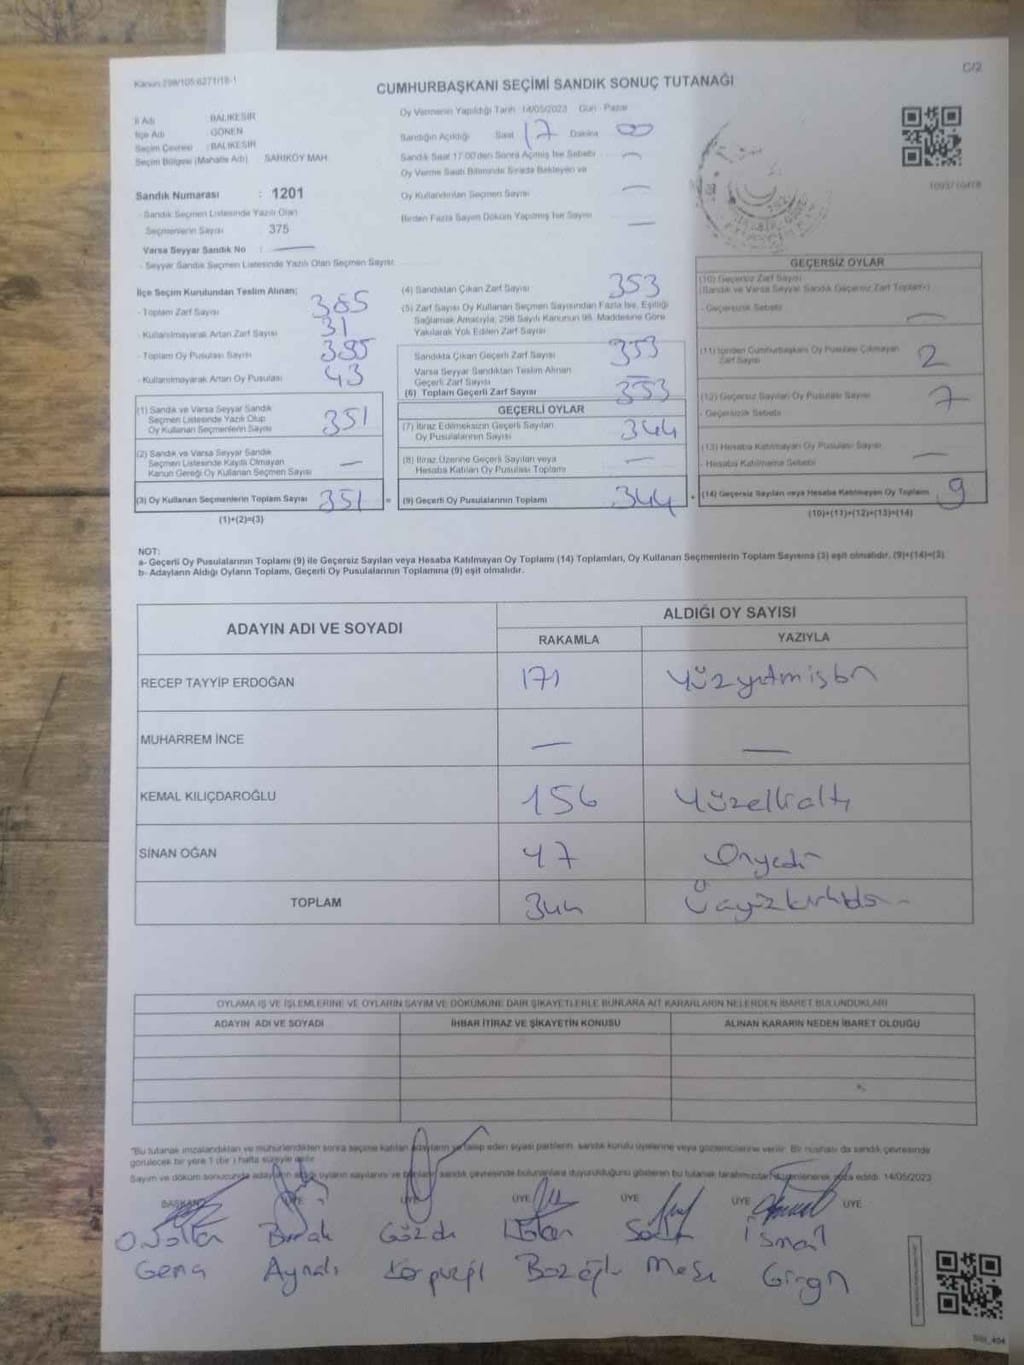 Kanun 298/105-6271/18-1
C/2
CUMHURBAŞKANI SEÇİMİ SANDIK SONUÇ TUTANAĞI
İl Adı BALIKESİR
İlçe Adı GÖNEN
Seçim Çevresi : BALIKESİR
Seçim Bölgesi (Mahalle Adı) SARIKÖY MAH.
Sandık Numarası : 1201
- Sandık Seçmen Listesinde Yazılı Olan
Seçmenlerin Sayısı 375
Varsa Seyyar Sandık No : —
- Seyyar Sandık Seçmen Listesinde Yazılı Olan Seçmen Sayısı:
Oy Vermenin Yapıldığı Tarih : 14/05/2023 Gün : Pazar
Sandığın Açıldığı Saat 17 Dakika 00
Sandık Saat 17:00'den Sonra Açılmış İse Sebebi —
Oy Verme Saati Bitiminde Sırada Bekleyen ve
Oy Kullandırılan Seçmen Sayısı —
Birden Fazla Sayım Döküm Yapılmış İse Sayısı —
İlçe Seçim Kurulundan Teslim Alınan;
- Toplam Zarf Sayısı 385
- Kullanılmayarak Artan Zarf Sayısı 31
- Toplam Oy Pusulası Sayısı 395
- Kullanılmayarak Artan Oy Pusulası 43
(1) Sandık ve Varsa Seyyar Sandık
Seçmen Listesinde Yazılı Olup
Oy Kullanan Seçmenlerin Sayısı 351
(2) Sandık ve Varsa Seyyar Sandık
Seçmen Listesinde Kayıtlı Olmayan
Kanun Gereği Oy Kullanan Seçmen Sayısı —
(3) Oy Kullanan Seçmenlerin Toplam Sayısı 351 =
(1)+(2)=(3)
(4) Sandıktan Çıkan Zarf Sayısı 353
(5) Zarf Sayısı Oy Kullanan Seçmen Sayısından Fazla İse, Eşitliği
Sağlamak Amacıyla, 298 Sayılı Kanunun 98. Maddesine Göre
Yakılarak Yok Edilen Zarf Sayısı
Sandıkta Çıkan Geçerli Zarf Sayısı 353
Varsa Seyyar Sandıktan Teslim Alınan
Geçerli Zarf Sayısı —
(6) Toplam Geçerli Zarf Sayısı 353
GEÇERLİ OYLAR
(7) İtiraz Edilmeksizin Geçerli Sayılan
Oy Pusulalarının Sayısı 344
(8) İtiraz Üzerine Geçerli Sayılan veya
Hesaba Katılan Oy Pusulası Toplamı —
(9) Geçerli Oy Pusulalarının Toplamı 344 +
GEÇERSİZ OYLAR
(10) Geçersiz Zarf Sayısı
(Sandık ve Varsa Seyyar Sandık Geçersiz Zarf Toplamı)
- Geçersizlik Sebebi —
(11) İçinden Cumhurbaşkanı Oy Pusulası Çıkmayan
Zarf Sayısı 2
(12) Geçersiz Sayılan Oy Pusulası Sayısı 7
- Geçersizlik Sebebi
(13) Hesaba Katılmayan Oy Pusulası Sayısı
- Hesaba Katılmama Sebebi —
(14) Geçersiz Sayılan veya Hesaba Katılmayan Oy Toplamı 9
(10)+(11)+(12)+(13)=(14)
NOT:
a- Geçerli Oy Pusulalarının Toplamı (9) ile Geçersiz Sayılan veya Hesaba Katılmayan Oy Toplamı (14) Toplamları, Oy Kullanan Seçmenlerin Toplam Sayısına (3) eşit olmalıdır. (9)+(14)=(3)
b- Adayların Aldığı Oyların Toplamı, Geçerli Oy Pusulalarının Toplamına (9) eşit olmalıdır.
ADAYIN ADI VE SOYADI ALDIĞI OY SAYISI
RAKAMLA YAZIYLA
RECEP TAYYİP ERDOĞAN 171 Yüzyetmişbir
MUHARREM İNCE — —
KEMAL KILIÇDAROĞLU 156 Yüzellialtı
SİNAN OĞAN 47 Onyedi
TOPLAM 344
OYLAMA İŞ VE İŞLEMLERİNE VE OYLARIN SAYIM VE DÖKÜMÜNE DAİR ŞİKAYETLERLE BUNLARA AİT KARARLARIN NELERDEN İBARET BULUNDUKLARI
ADAYIN ADI VE SOYADI İHBAR İTİRAZ VE ŞİKAYETİN KONUSU ALINAN KARARIN NEDEN İBARET OLDUĞU
"Bu tutanak imzalandıktan ve mühürlendikten sonra seçime katılan adayların ve talep eden siyasi partilerin, sandık kurulu üyelerine veya gözlemcilerine verilir. Bir nüshası da sandık çevresinde
görülecek bir yere 1 (bir) hafta süreyle asılır.
Sayım ve döküm sonucunda adayların aldığı oyların sayılarını ve bunların sandık çevresinde bulunanlara duyurulduğunu gösteren bu tutanak tarafımızdan düzenlenerek imza edildi. 14/05/2023
BAŞKAN ÜYE ÜYE ÜYE ÜYE ÜYE ÜYE
Burak İsmail
Aynalı